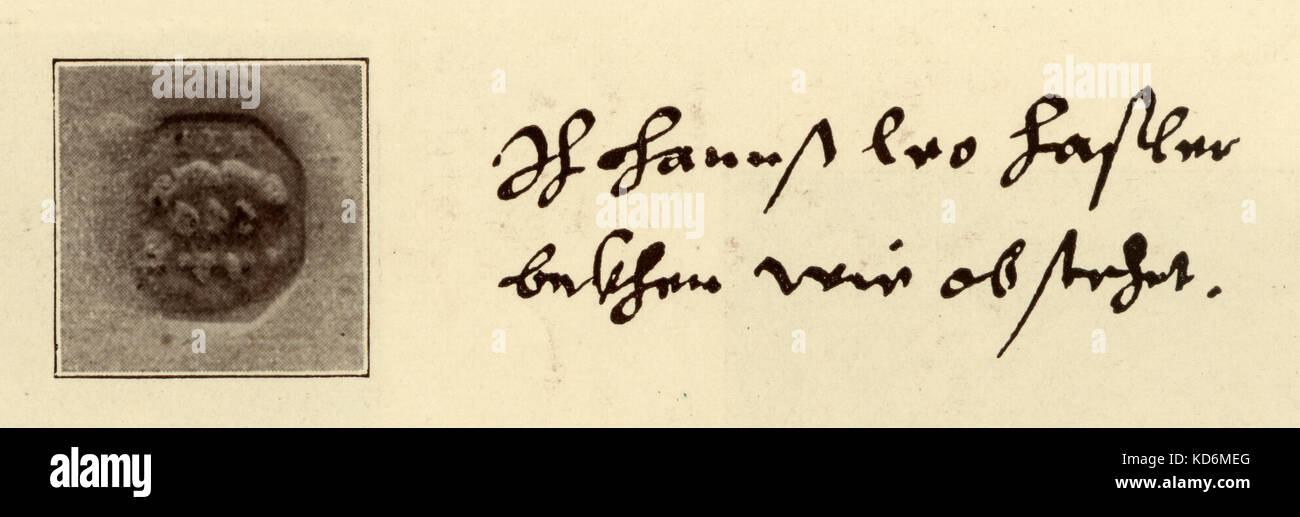 Ich hannß leo hasler
bekhen wie obstehet.
alamy
Image ID: KD6MEG
www.alamy.com